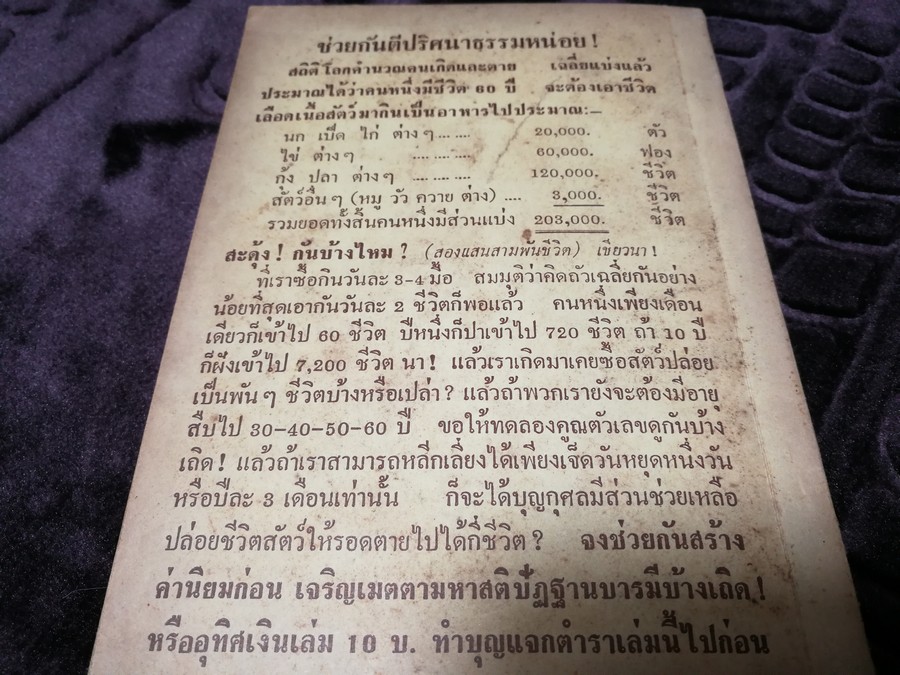 ช่วยกันตีปริศนาธรรมหน่อย!
สถิติโลกคำนวณคนเกิดและตาย เฉลี่ยแบ่งแล้ว
ประมาณได้ว่าคนหนึ่งมีชีวิต 60 ปี จะต้องเอาชีวิต
เลือดเนื้อสัตว์มากินเป็นอาหารไปประมาณ:—
นก เป็ด ไก่ ต่างๆ ...... 20,000. ตัว
ไข่ ต่างๆ ......... 60,000. ฟอง
กุ้ง ปลา ต่างๆ ......... 120,000. ชีวิต
สัตว์อื่นๆ (หมู วัว ควาย ต่าง) .... 3,000. ชีวิต
รวมยอดทั้งสิ้นคนหนึ่งมีส่วนแบ่ง 203,000. ชีวิต
สะดุ้ง! กันบ้างไหม? (สองแสนสามพันชีวิต) เชียวนา!
ที่เราซื้อกินวันละ 3-4 มื้อ สมมุติว่าคิดถัวเฉลี่ยกันอย่าง
น้อยที่สุดเอากันวันละ 2 ชีวิตก็พอแล้ว คนหนึ่งเพียงเดือน
เดียวก็เข้าไป 60 ชีวิต ปีหนึ่งก็ปาเข้าไป 720 ชีวิต ถ้า 10 ปี
ก็ฝังเข้าไป 7,200 ชีวิต นา! แล้วเราเกิดมาเคยซื้อสัตว์ปล่อย
เป็นพันๆ ชีวิตบ้างหรือเปล่า? แล้วถ้าพวกเรายังจะต้องมีอายุ
สืบไป 30-40-50-60 ปี ขอให้ทดลองคูณตัวเลขดูกันบ้าง
เถิด! แล้วถ้าเราสามารถหลีกเลี่ยงได้เพียงเจ็ดวันหยุดหนึ่งวัน
หรือปีละ 3 เดือนเท่านั้น ก็จะได้บุญกุศลมีส่วนช่วยเหลือ
ปล่อยชีวิตสัตว์ให้รอดตายไปได้กี่ชีวิต? จงช่วยกันสร้าง
ค่านิยมก่อน เจริญเมตตามหาสติปัฏฐานบารมีบ้างเถิด!
หรืออุทิศเงินเล่ม 10 บ. ทำบุญแจกตำราเล่มนี้ไปก่อน